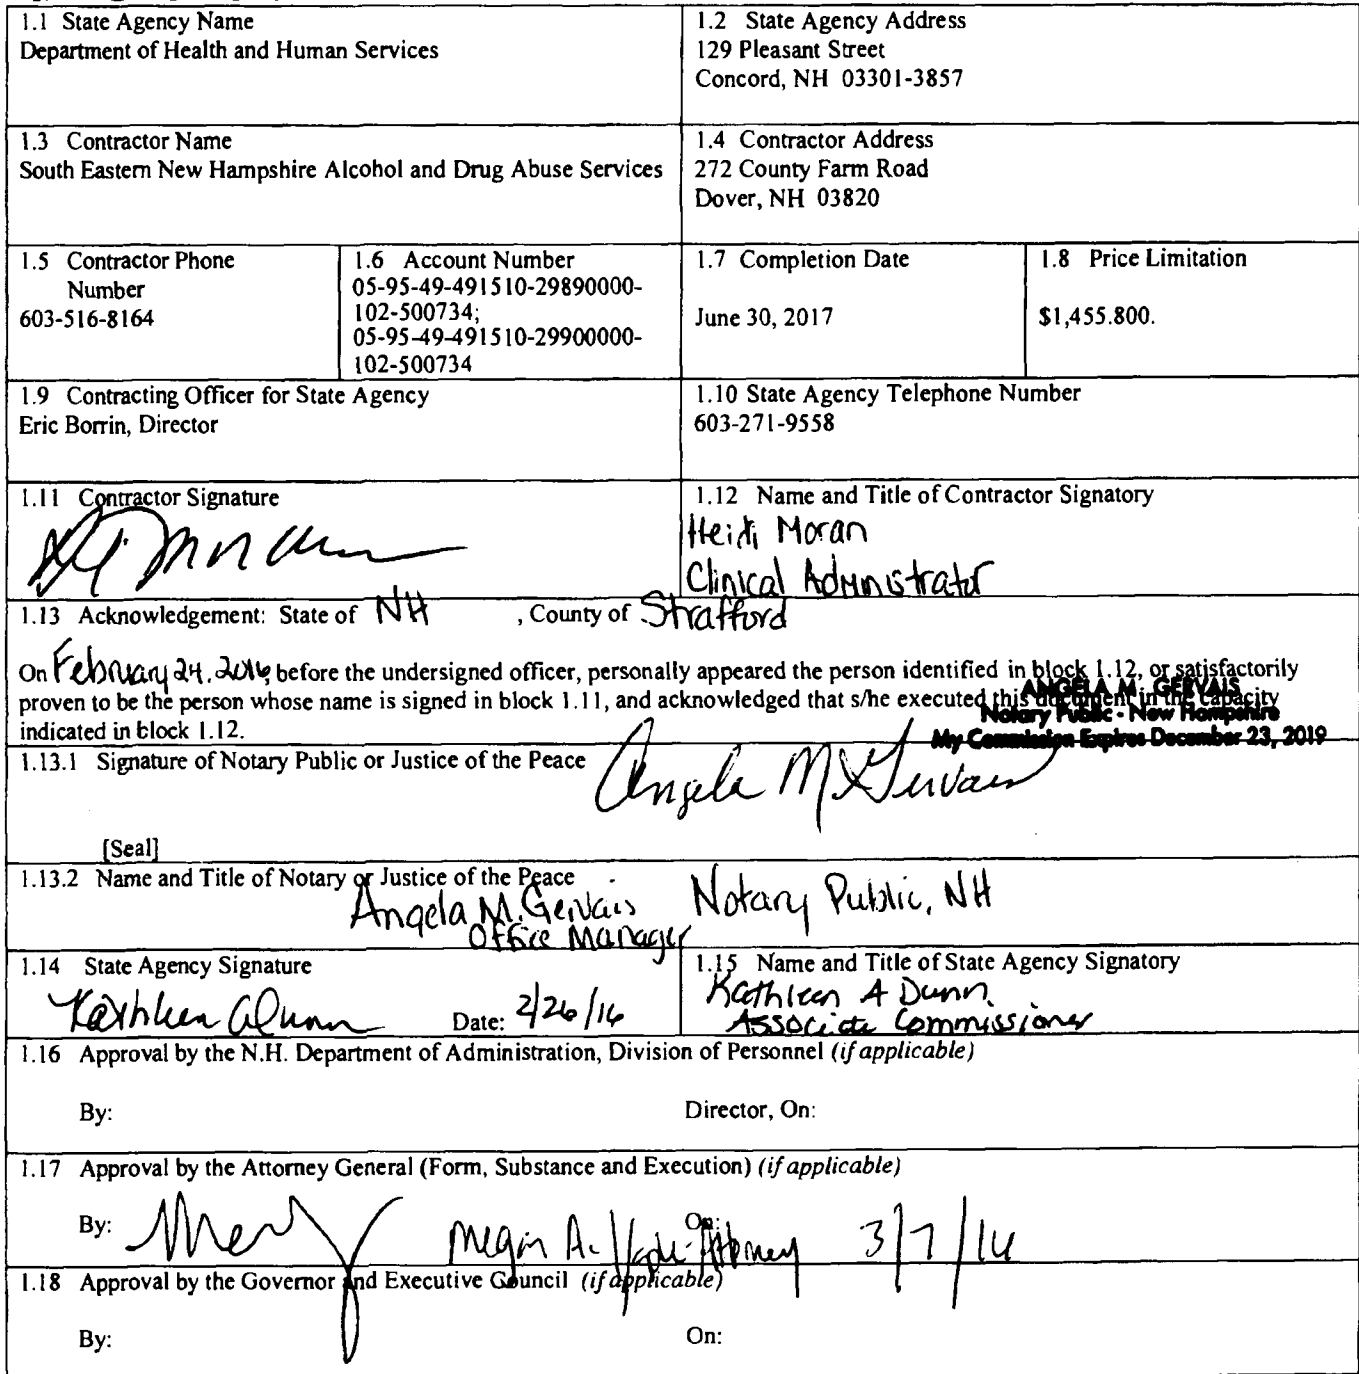 1.1 State Agency Name
Department of Health and Human Services
1.2 State Agency Address
129 Pleasant Street
Concord, NH 03301-3857
1.3 Contractor Name
South Eastern New Hampshire Alcohol and Drug Abuse Services
1.4 Contractor Address
272 County Farm Road
Dover, NH 03820
1.5 Contractor Phone
Number
603-516-8164
1.6 Account Number
05-95-49-491510-29890000-
102-500734;
05-95-49-491510-29900000-
102-500734
1.7 Completion Date
June 30, 2017
1.8 Price Limitation
$1,455.800.
1.9 Contracting Officer for State Agency
Eric Borrin, Director
1.10 State Agency Telephone Number
603-271-9558
1.11 Contractor Signature
1.12 Name and Title of Contractor Signatory
Heidi Moran
Clinical Administrator
1.13 Acknowledgement: State of NH , County of Strafford
On February 24, 2016, before the undersigned officer, personally appeared the person identified in block 1.12, or satisfactorily
proven to be the person whose name is signed in block 1.11, and acknowledged that s/he executed this document in the capacity
indicated in block 1.12.
ANGELA M. GERVAIS
Notary Public - New Hampshire
My Commission Expires December 23, 2019
1.13.1 Signature of Notary Public or Justice of the Peace
Angela M Gervais
[Seal]
1.13.2 Name and Title of Notary or Justice of the Peace
Angela M. Gervais Notary Public, NH
Office Manager
1.14 State Agency Signature
Kathleen A Dunn Date: 2/26/16
1.15 Name and Title of State Agency Signatory
Kathleen A Dunn
Associate Commissioner
1.16 Approval by the N.H. Department of Administration, Division of Personnel (if applicable)
By: Director, On:
1.17 Approval by the Attorney General (Form, Substance and Execution) (if applicable)
By: Megan A. - Attorney On: 3/7/16
1.18 Approval by the Governor and Executive Council (if applicable)
By: On: